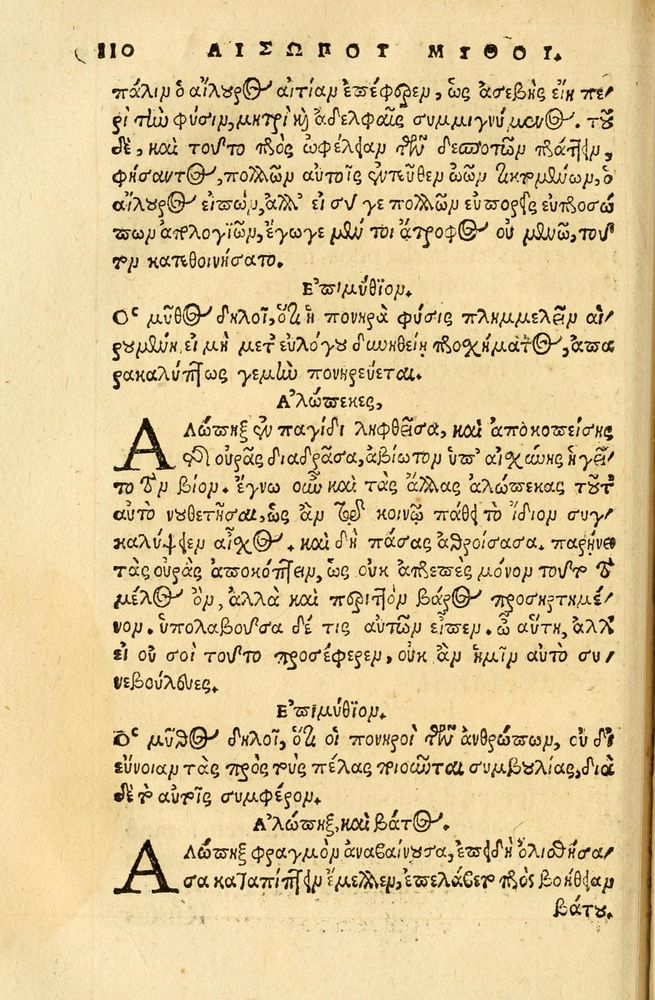 110 ΑΙΣΩΠΟΥ ΜΥΘΟΙ.
πάλιν ὁ αἴλουρος αἰτίαν ἐπέφερεν, ὡς ἀσεβὴς εἴη πε-
ρὶ τὴν φύσιν, μητρὶ κỳ ἀδελφαῖς συμμιγνύμενος. τοῦ
δὲ, καὶ τοῦτο πρὸς ὠφέλειαν τῶν δεσποτῶν πράττειν,
φήσαντος, πολλῶν αὐτοῖς ἐντεῦθεν ὠῶν τικτομένων, ὁ
αἴλουρος εἰπὼν, ἀλλ' εἰ σύ γε πολλῶν εὐπορεῖς εὐπροσώ
πων ἀπολογιῶν, ἔγωγε μέν τοι ἄτροφος οὐ μενῶ, τοῦ
τον κατεθοινήσατο.
Ἐπιμύθιον.
Ὁ μῦθος δηλοῖ, ὅτι ἡ πονηρὰ φύσις πλημμελεῖν αἱ-
ρουμένη, εἰ μὴ μετ' εὐλόγου δυνηθείη προσχήματος, ἀπα
ρακαλύπτως γε μὴν πονηρεύεται.
Ἀλώπεκες,
Ἀλώπηξ ἐν παγίδι ληφθεῖσα, καὶ ἀποκοπείσης
τῆς οὐρᾶς διαδρᾶσα, ἀβίωτον ὑπ' αἰσχύνης ἡγεῖ-
το τὸν βίον. ἔγνω οὖν καὶ τὰς ἄλλας ἀλώπεκας τοῦτ'
αὐτὸ νουθετῆσαι, ὡς ἂν τῷ κοινῷ πάθει τὸ ἴδιον συγ-
καλύψειεν αἶσχος. καὶ δὴ πάσας ἀθροίσασα. παρῄνει
τὰς οὐρὰς ἀποκόπτειν, ὡς οὐκ ἀπρεπὲς μόνον τοῦτο τὸ
μέλος ὂν, ἀλλὰ καὶ περιττὸν βάρος προσηρτημέ-
νον. ὑπολαβοῦσα δέ τις αὐτῶν εἶπεν. ὦ αὕτη, ἀλλ'
εἰ οὔ σοι τοῦτο προσέφερεν, οὐκ ἂν ἡμῖν αὐτὸ συ-
νεβούλευες.
Ἐπιμύθιον.
Ὁ μῦθος δηλοῖ, ὅτι οἱ πονηροὶ τῶν ἀνθρώπων, οὐ δι'
εὔνοιαν τὰς πρὸς τοὺς πέλας ποιοῦνται συμβουλίας, διὰ
δὲ τὸ αὐτοῖς συμφέρον.
Ἀλώπηξ, καὶ βάτος.
Ἀλώπηξ φραγμὸν ἀναβαίνουσα, ἐπειδὴ ὀλισθήσα-
σα καταπίπτειν ἔμελλεν, ἐπελάβετο πρὸς βοήθειαν
βάτου.